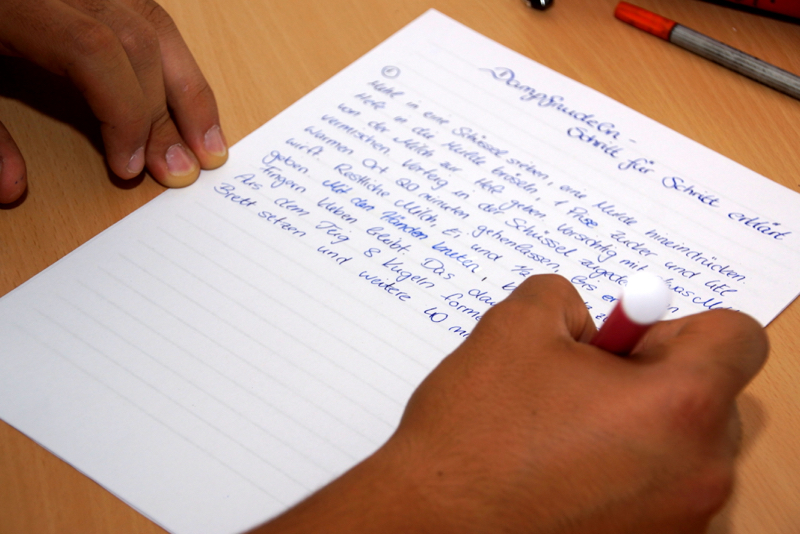 Dampfnudeln -
Schritt für Schritt erklärt
①
Mehl in eine Schüssel sieben, eine Mulde hineindrücken.
Hefe in die Mulde bröseln, 1 Prise Zucker und etl.
von der Milch zur Hefe geben. Vorsichtig mit etwas Mehl
vermischen. Vorteig in der Schüssel zugedeckt
warmen Ort 20 minuten gehenlassen, bis er
wirft. Restliche Milch, Ei und
geben. Mit den Händen kneten,
Fingern kleben bleibt. Das
Aus dem Teig 8 Kugeln form
Brett setzen und weitere 40